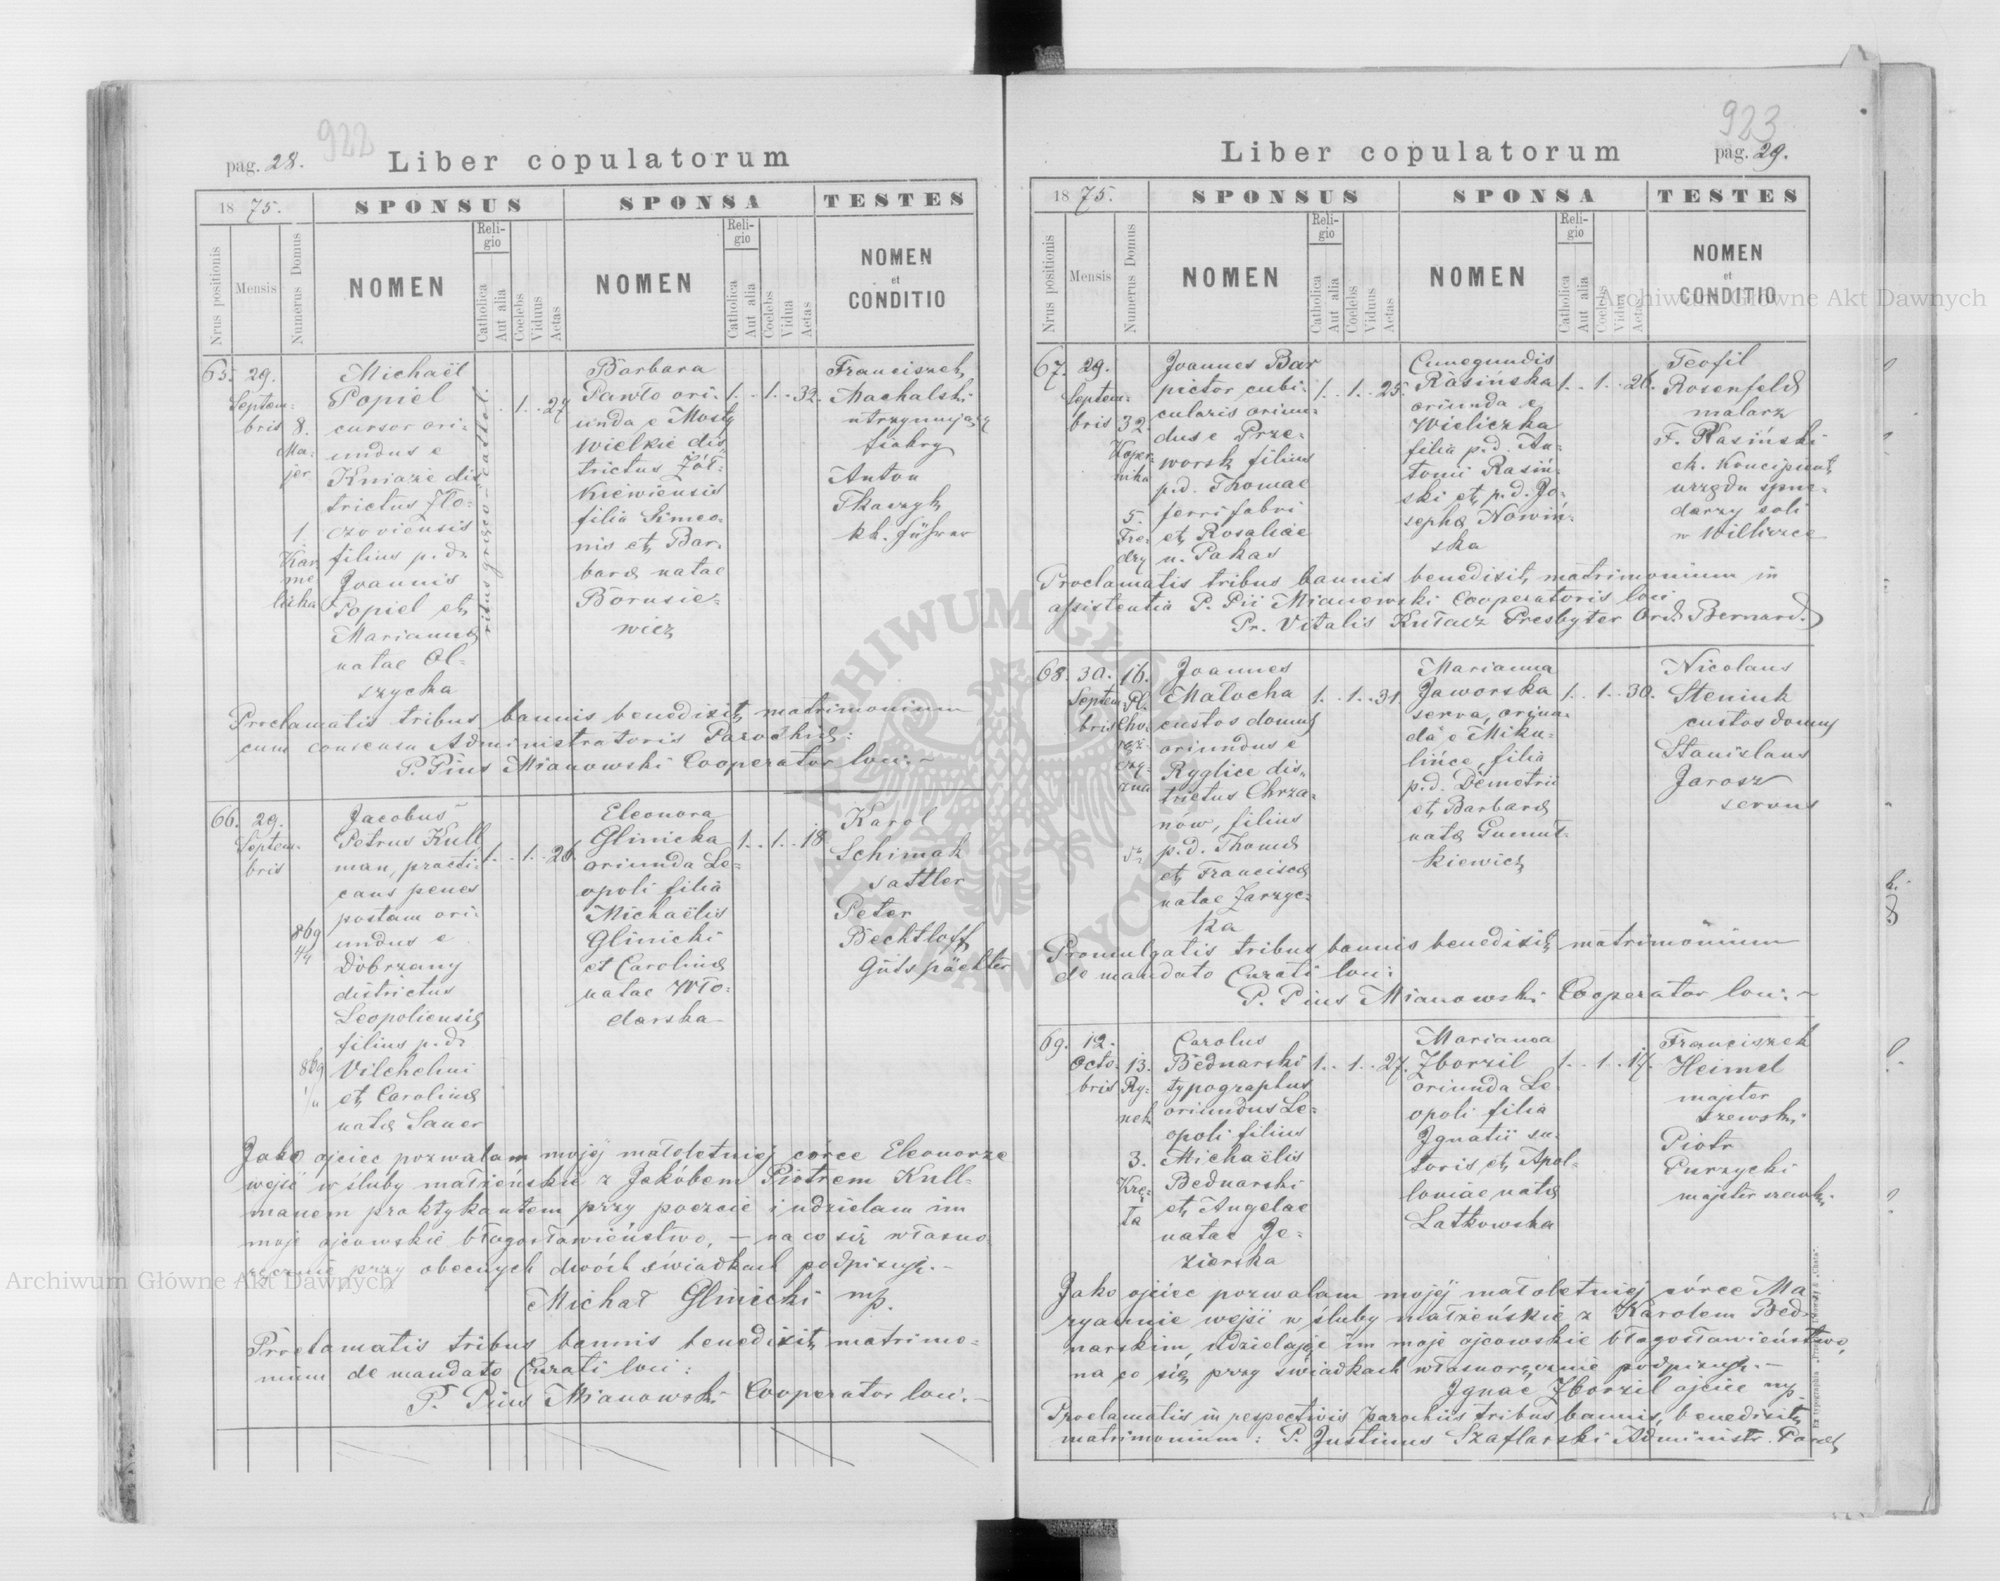 922
pag. 28.
Liber copulatorum
1875.
SPONSUS
SPONSA
TESTES
Nrus positionis
Mensis
Numerus Domus
NOMEN
Religio
Catholica
Aut alia
Coelebs
Viduus
Aetas
NOMEN
Religio
Catholica
Aut alia
Coelebs
Vidua
Aetas
NOMEN
et
CONDITIO
65. 29.
Septem-
bris 8.
Ma-
jer
1.
Kar
me
licka
Michaël
Popiel
cursor ori-
undus e
Kniaże dis
trictus Zło-
czoviensis
filius p.d.
Joannis
Popiel et
Mariannæ
natae Ol-
szycka
ritus graeco-cathol.
1. 27
Barbara
Pawło ori-
unda e Mosty
Wielkie dis
trictus Żół-
kiewiensis
filia Simeo-
nis et Bar-
baræ natae
Borusie-
wicz
1. 1. 32.
Franciszek
Machalski
utrzymujący
fiakry
Anton
Tkaczyk
kk. Führer
Proclamatis tribus bannis benedixit matrimonium
cum consensu Administratoris Parochiæ:
P. Pius Mianowski Cooperator loci.-
66. 29.
Septem-
bris
869
4/4
869
Jacobus
Petrus Kull
man, practi-
cans penes
postam ori-
undus e
Dobrzany
districtus
Leopoliensis
filius p.d.
Vilhelmi
et Carolinæ
natæ Sauer
1. 1. 26.
Eleonora
Glinicka
oriunda Le-
opoli filia
Michaëlis
Glinicki
et Carolinæ
natae Wło-
darska
1. 1. 18
Karol
Schimak
sattler
Peter
Bechtloff
Gutspächter
Jako ojciec pozwalam mojej małoletniej córce Eleonorze
wejść w śluby małżeńskie z Jakóbem Piotrem Kull-
manem praktykantem przy poczcie i udzielam im
moje ojcowskie błogosławieństwo, - na co się własno-
ręcznie przy obecnych dwóch świadkach podpisuję.-
Michał Glinicki mp.
Proclamatis tribus bannis benedixit matrimo-
nium de mandato Curati loci:
P. Pius Mianowski Cooperator loci.-
923
Liber copulatorum
pag. 29.
1875.
SPONSUS
SPONSA
TESTES
Nrus positionis
Mensis
Numerus Domus
NOMEN
Religio
Catholica
Aut alia
Coelebs
Viduus
Aetas
NOMEN
Religio
Catholica
Aut alia
Coelebs
Vidua
Aetas
NOMEN
et
CONDITIO
67. 29.
Septem-
bris 32.
Koper-
nika
5.
Fre-
dry
Joannes Bar
pictor cubi-
cularis oriun-
dus e Prze-
worsk filius
p.d. Thomae
ferri fabri
et Rosaliae
n. Pakas
1. 1. 25.
Cunegundis
Rasińska
oriunda e
Wieliczka
filia p.d. An-
tonii Rasiń-
ski et p.d. Jo-
sephæ Nowiń-
ska
1. 1. 26.
Teofil
Rosenfeld
malarz
F. Rasiński
ck. Koncipient
urzędu sprze-
daży soli
w Willicce
Proclamatis tribus bannis benedixit matrimonium in
assistentia P. Pii Mianowski Cooperatoris loci
Pr. Vitalis Kułacz Presbyter Ord. Bernard.
68. 30. 16.
Septem Pl.
bris Cho-
rąż-
czy-
zna
Joannes
Małocha
custos domus
oriundus e
Ryglice dis-
trictus Chrza-
nów, filius
p.d. Thomæ
et Franciscæ
natae Zarzyc-
ka
1. 1. 31.
Marianna
Jaworska
serva, oriun-
da e Miku-
lińce, filia
p.d. Demetrii
et Barbaræ
natæ Gumuł-
kiewicz
1. 1. 30.
Nicolaus
Steniuk
custos domus
Stanislaus
Jarosz
servus
Promulgatis tribus bannis benedixit matrimonium
de mandato Curati loci:
P. Pius Mianowski Cooperator loci.-
69. 12.
Octo- 13.
bris Ry-
nek
3.
Krę-
ta
Carolus
Bednarski
typographus
oriundus Le-
opoli filius
Michaëlis
Bednarski
et Angelae
natae Je-
zierska
1. 1. 27.
Marianna
Zborzil
oriunda Le-
opoli filia
Ignatii su-
toris et Apol-
loniae natæ
Latkowska
1. 1. 17.
Franciszek
Heimel
majster
szewski
Piotr
Purzycki
majster szewk.
Jako ojciec pozwalam mojej małoletniej córce Ma
ryannie wejść w śluby małżeńskie z Karolem Bed-
narskim, udzielając im moje ojcowskie błogosławieństwo,
na co się przy świadkach własnoręcznie podpisuję.-
Ignac Zborzil ojciec mp.
Proclamatis in respectivis parochiis tribus bannis, benedixit
matrimonium: P. Justinus Szaflarski Administr. Paroch
Archiwum Główne Akt Dawnych
Archiwum Główne Akt Dawnych
ARCHIWUM GŁÓWNE AKT DAWNYCH